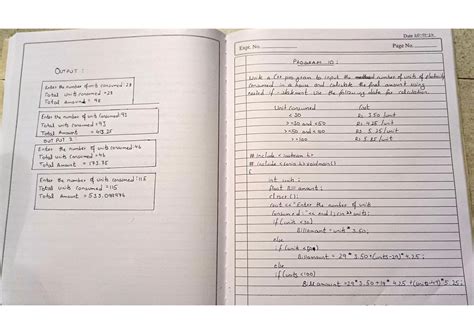 OUTPUT:
Enter the number of units consumed: 28
Total units consumed = 28
Total Amount = 98
Enter the number of units consumed: 93
Total units consumed = 93
Total Amount = 413.25
OUTPUT 2
Enter the number of units consumed: 46
Total units consumed = 46
Total Amount = 173.75
Enter the number of units consumed: 115
Total units consumed = 115
Total Amount =
Date
Expt. No.
Page No.
PROGRAM 10:
Write a C++ program to input the number of units of electricity
consumed in a house and calculate the final amount using
nested if-statement. Use the following data for calculation
Unit consumed Cost
< 30 Rs 3.50 /unit
>=30 and <50 Rs 4.25 /unit
>=50 and <100 Rs 5.25 /unit
>=100 Rs 5.85 /unit
# include <iostream.h>
# include <conio.h>
{
int units;
float Bill amount;
clrscr();
cout << "Enter the number of units
consumed:" << endl; cin >> units
if (unit <30)
Billamount = unit * 3.50;
else
if (unit <50)
Billamount = 29 * 3.50 + (units-29) * 4.25;
else
if (units <100)
Billamount = 29 * 3.50 + 19 * 4.25 + (units-49) * 5.25